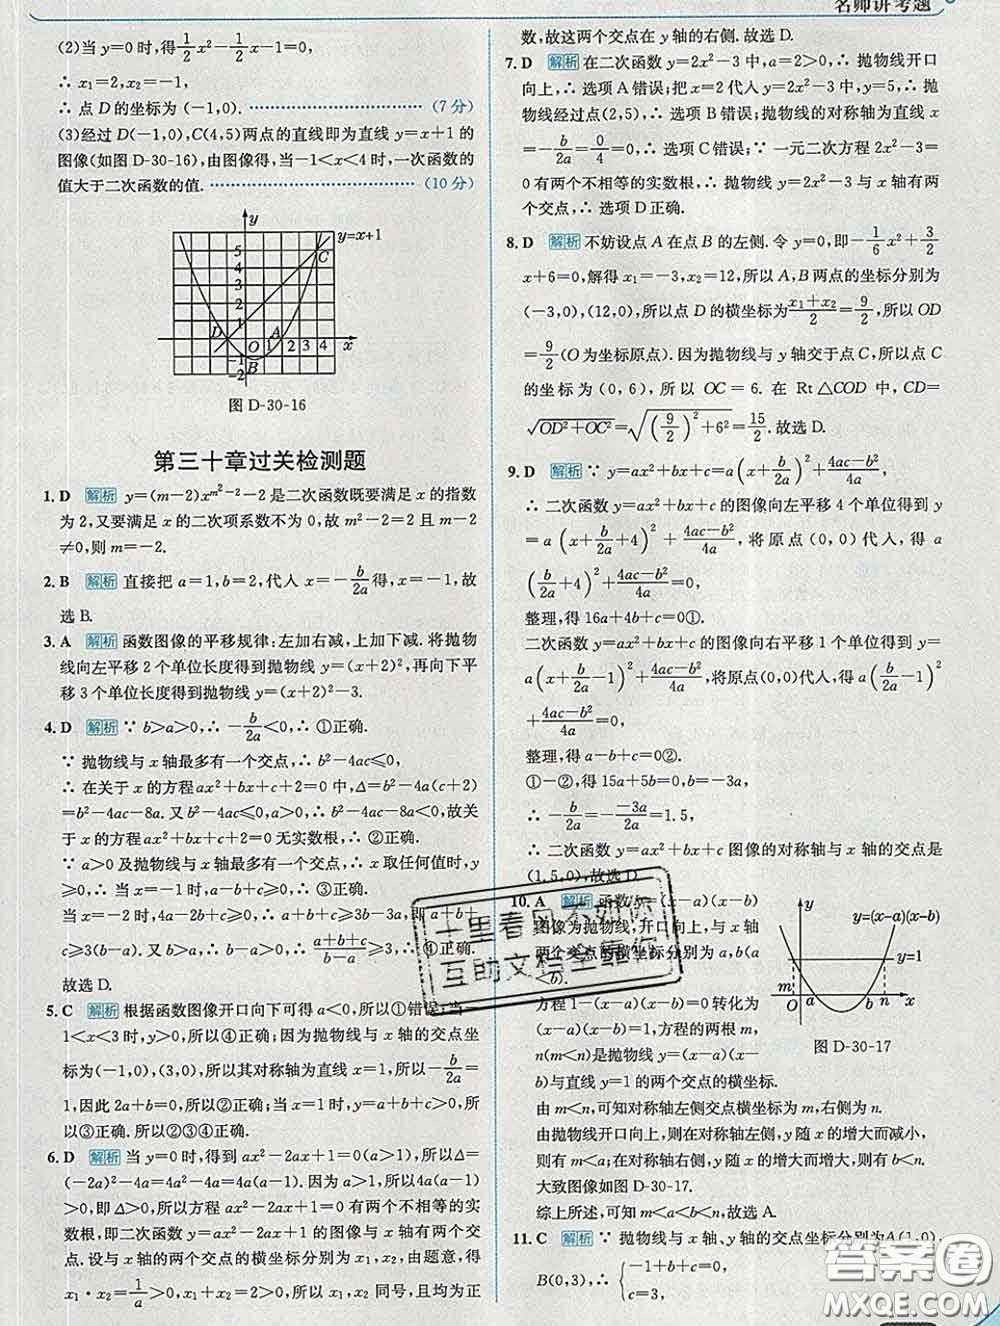 名师讲考题
(2)当 y=0 时,得\frac{1}{2}x²-\frac{1}{2}x-1=0,
∴ x₁=2,x₂=-1,
∴ 点 D 的坐标为 (-1,0). (7 分)
(3)经过 D(-1,0),C(4,5)两点的直线即为直线 y=x+1 的
图像(如图 D-30-16),由图像得,当-1<x<4 时,一次函数的
值大于二次函数的值. (10 分)
y
y=x+1
5
C
4
3
2
1
D O 1 A 2 3 4 x
-1
B
-2
图 D-30-16
第三十章过关检测题
1. D 解析 y=(m-2)x^{m²-2}-2 是二次函数既要满足 x 的指数
为 2,又要满足 x 的二次项系数不为 0,故 m²-2=2 且 m-2
≠0,则 m=-2.
2. B 解析 直接把 a=1,b=2,代入 x=-\frac{b}{2a}得,x=-1,故
选 B.
3. A 解析 函数图像的平移规律:左加右减,上加下减. 将抛物
线向左平移 2 个单位长度得到抛物线 y=(x+2)²,再向下平
移 3 个单位长度得到抛物线 y=(x+2)²-3.
4. D 解析 ∵ b>a>0,∴ -\frac{b}{2a}<0,∴ ①正确.
∵ 抛物线与 x 轴最多有一个交点,∴ b²-4ac≤0,
∴ 在关于 x 的方程 ax²+bx+c+2=0 中,Δ=b²-4a(c+2)
=b²-4ac-8a. 又 b²-4ac≤0,a>0,∴ b²-4ac-8a<0,故关
于 x 的方程 ax²+bx+c+2=0 无实数根,∴ ②正确.
∵ a>0 及抛物线与 x 轴最多有一个交点,∴ x 取任何值时,y
≥0,∴ 当 x=-1 时,a-b+c≥0,∴ ③正确.
当 x=-2 时,4a-2b+c≥0,∴ a+b+c≥3b-3a,即 a+b+
c≥3(b-a). 又 b>a,∴ b-a>0,∴ \frac{a+b+c}{b-a}≥3,∴ ④正确.
故选 D.
5. C 解析 根据函数图像开口向下可得 a<0,所以①错误;当
1<x<3 时,y>0,所以④正确;因为抛物线与 x 轴的交点坐
标为(-1,0),(3,0),所以其对称轴为直线 x=1,所以-\frac{b}{2a}=
1,因此 2a+b=0,所以②正确;当 x=1 时,y=a+b+c>0,所
以③正确. 所以②③④正确.
6. D 解析 当 y=0 时,得到 ax²-2ax+1=0(a>1),所以 Δ=
(-2a)²-4a=4a²-4a=4a(a-1). 因为 a>1,所以 4a(a-1)
>0,即 Δ>0,所以方程 ax²-2ax+1=0 有两个不相等的实数
根,即二次函数 y=ax²-2ax+1 的图像与 x 轴有两个交
点. 设与 x 轴的两个交点的横坐标分别为 x₁,x₂,由题意,得
x₁·x₂=\frac{1}{a}>0,x₁+x₂=2>0,所以 x₁,x₂ 同号,且均为正
数,故这两个交点在 y 轴的右侧. 故选 D.
7. D 解析 在二次函数 y=2x²-3 中,a=2>0,∴ 抛物线开口
向上,∴ 选项 A 错误;把 x=2 代入 y=2x²-3 中,y=5,∴ 抛
物线经过点(2,5),∴ 选项 B 错误;抛物线的对称轴为直线
x=-\frac{b}{2a}=\frac{0}{4}=0,∴ 选项 C 错误;∵ 一元二次方程 2x²-3=
0 有两个不相等的实数根,∴ 抛物线 y=2x²-3 与 x 轴有两
个交点,∴ 选项 D 正确.
8. D 解析 不妨设点 A 在点 B 的左侧. 令 y=0,即-\frac{1}{6}x²+\frac{3}{2}
x+6=0,解得 x₁=-3,x₂=12,所以 A,B 两点的坐标分别为
(-3,0),(12,0),所以点 D 的横坐标为\frac{x₁+x₂}{2}=\frac{9}{2},所以 OD
=\frac{9}{2}(O 为坐标原点). 因为抛物线与 y 轴交于点 C,所以点 C
的坐标为 (0,6),所以 OC=6. 在 Rt△COD 中,CD=
\sqrt{OD²+OC²}=\sqrt{(\frac{9}{2})²+6²}=\frac{15}{2}. 故选 D.
9. D 解析 ∵ y=ax²+bx+c=a(x+\frac{b}{2a})²+\frac{4ac-b²}{4a},
∴ 二次函数 y=ax²+bx+c 的图像向左平移 4 个单位得到 y=
a(x+\frac{b}{2a}+4)²+\frac{4ac-b²}{4a},将原点 (0,0) 代入,得
a(\frac{b}{2a}+4)²+\frac{4ac-b²}{4a}=0,
整理,得 16a+4b+c=0①.
二次函数 y=ax²+bx+c 的图像向右平移 1 个单位得到 y=
a(x+\frac{b}{2a}-1)²+\frac{4ac-b²}{4a},将原点(0,0)代入,得 a(\frac{b}{2a}-1)²
+\frac{4ac-b²}{4a}=0,
整理,得 a-b+c=0②.
①-②,得 15a+5b=0,b=-3a,
∴ -\frac{b}{2a}=-\frac{-3a}{2a}=1.5,
∴ 二次函数 y=ax²+bx+c 图像的对称轴与 x 轴的交点是
(1.5,0),故选 D.
10. A 解析 函数 y=(x-a)(x-b)
图像为抛物线,开口向上,与 x 轴
两个交点的横坐标分别为 a,b(a
<b).
方程 1-(x-a)(x-b)=0 转化为
(x-a)(x-b)=1,方程的两根 m,
n(m<n)是抛物线 y=(x-a)(x-b)
与直线 y=1 的两个交点的横坐标.
y
y=(x-a)(x-b)
y=1
m O a b n x
图 D-30-17
由 m<n,可知对称轴左侧交点横坐标为 m,右侧为 n.
由抛物线开口向上,则在对称轴左侧,y 随 x 的增大而减少,
则有 m<a;在对称轴右侧,y 随 x 的增大而增大,则有 b<n.
大致图像如图 D-30-17.
综上所述,可知 m<a<b<n,故选 A.
11. C 解析 ∵ 抛物线与 x 轴、y 轴的交点坐标分别为 A(1,0),
B(0,3),∴ {-1+b+c=0,
c=3,
十里春风不如你
互助文档全靠你
答案圈
MXQE.COM